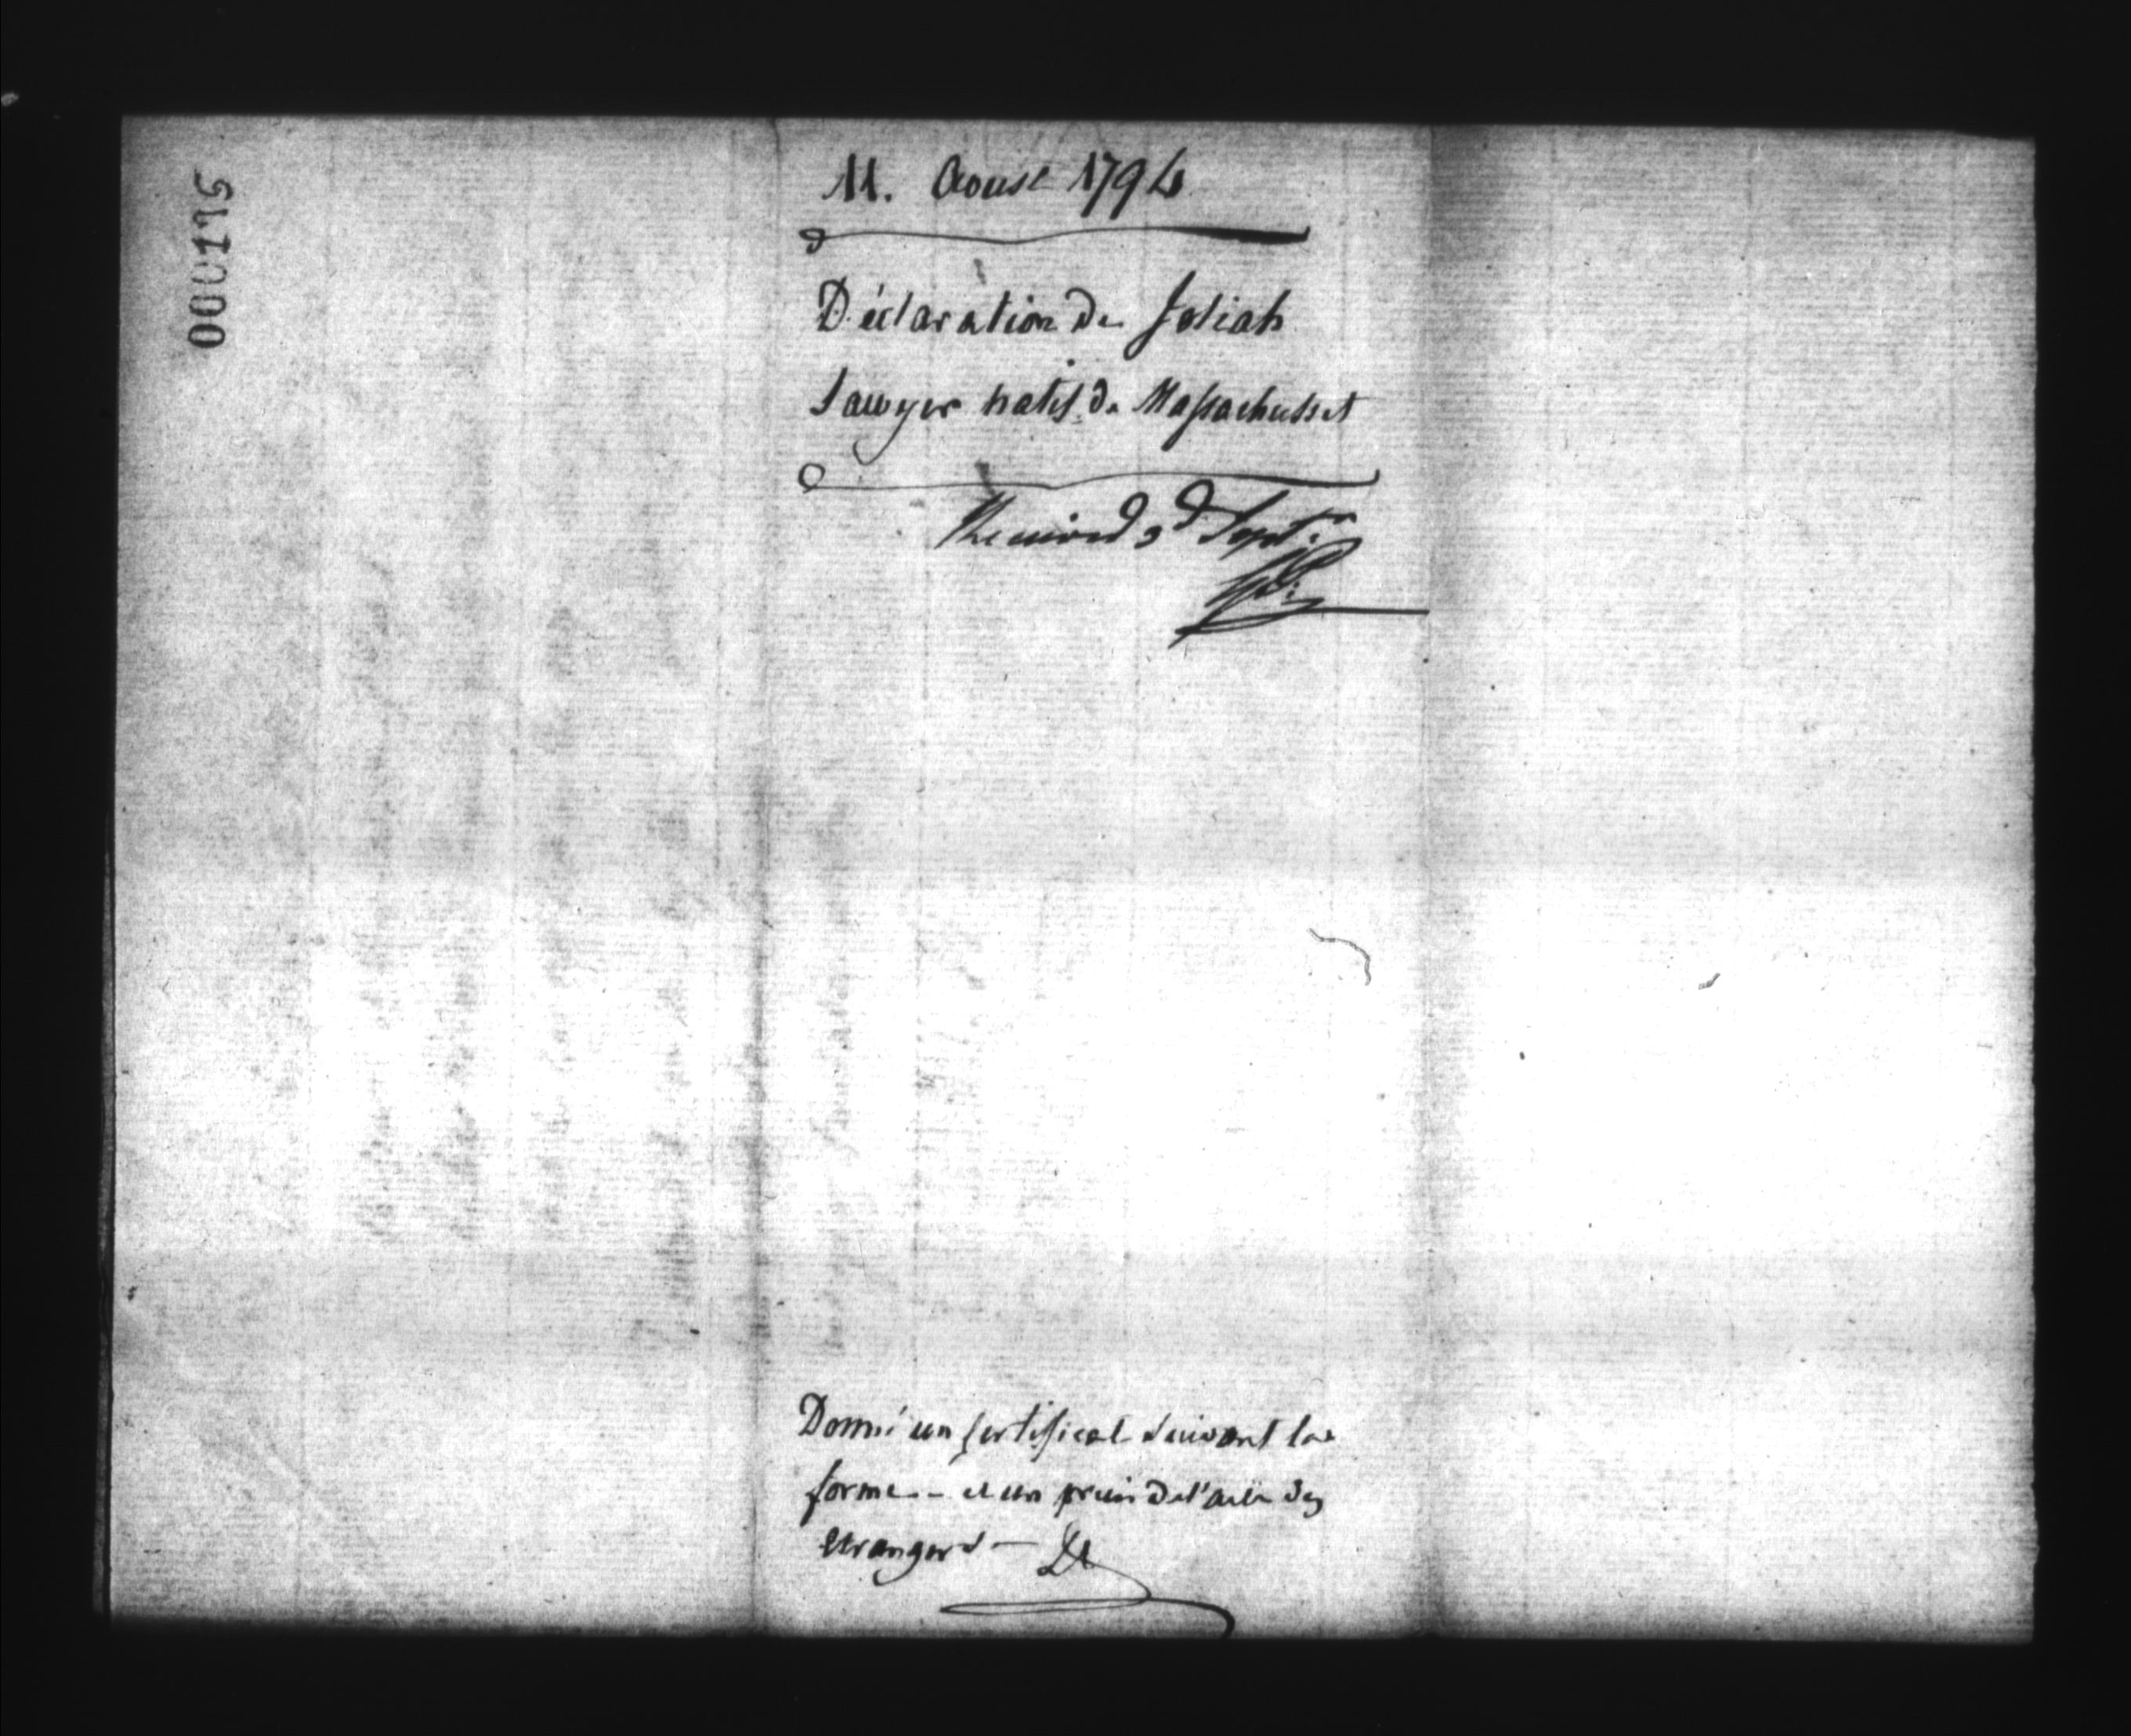 000115
11. Aoust 1794
Déclaration de Josiah
Sawyer natif de Massachusset
Received 3d Sept.
Donné un certificat suivant la
forme - et un précis de l'acte des
etrangers -